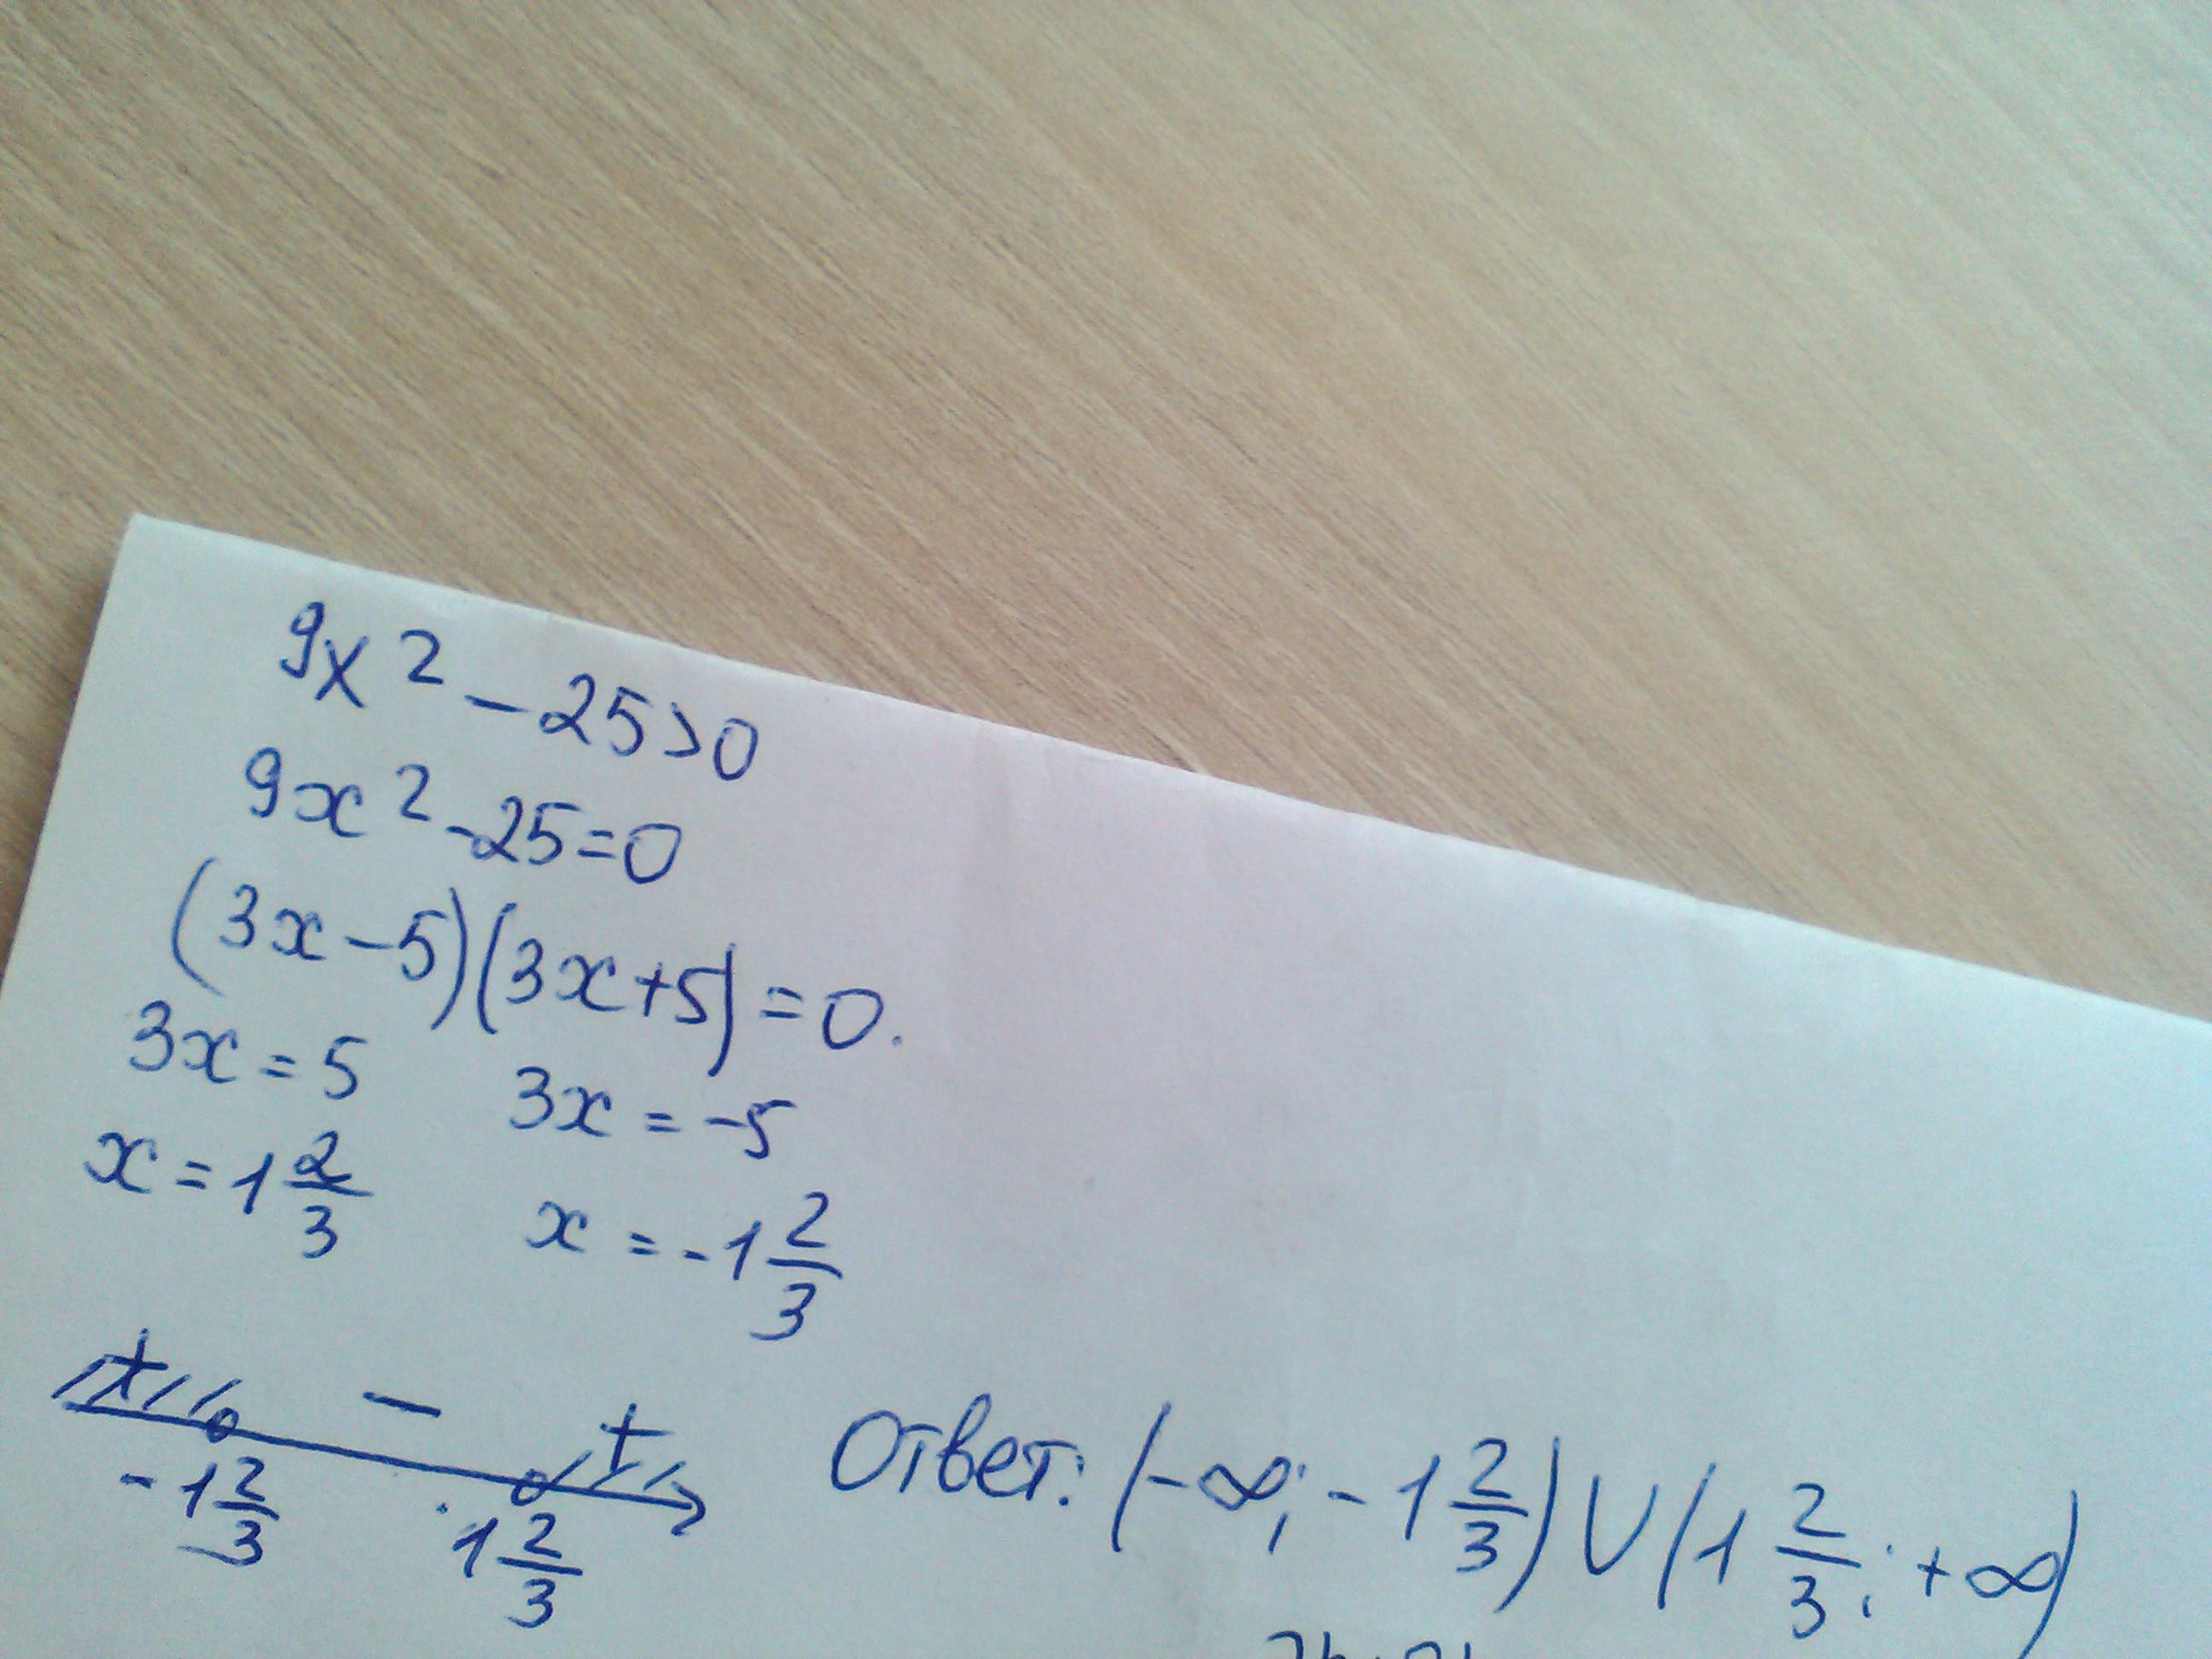 9x² - 25>0
9x² - 25=0
(3x-5)(3x+5)=0.
3x=5 3x=-5
x=1 2/3 x=-1 2/3
+ - +
-1 2/3 1 2/3
Ответ: (-∞; -1 2/3) ∪ (1 2/3; +∞)